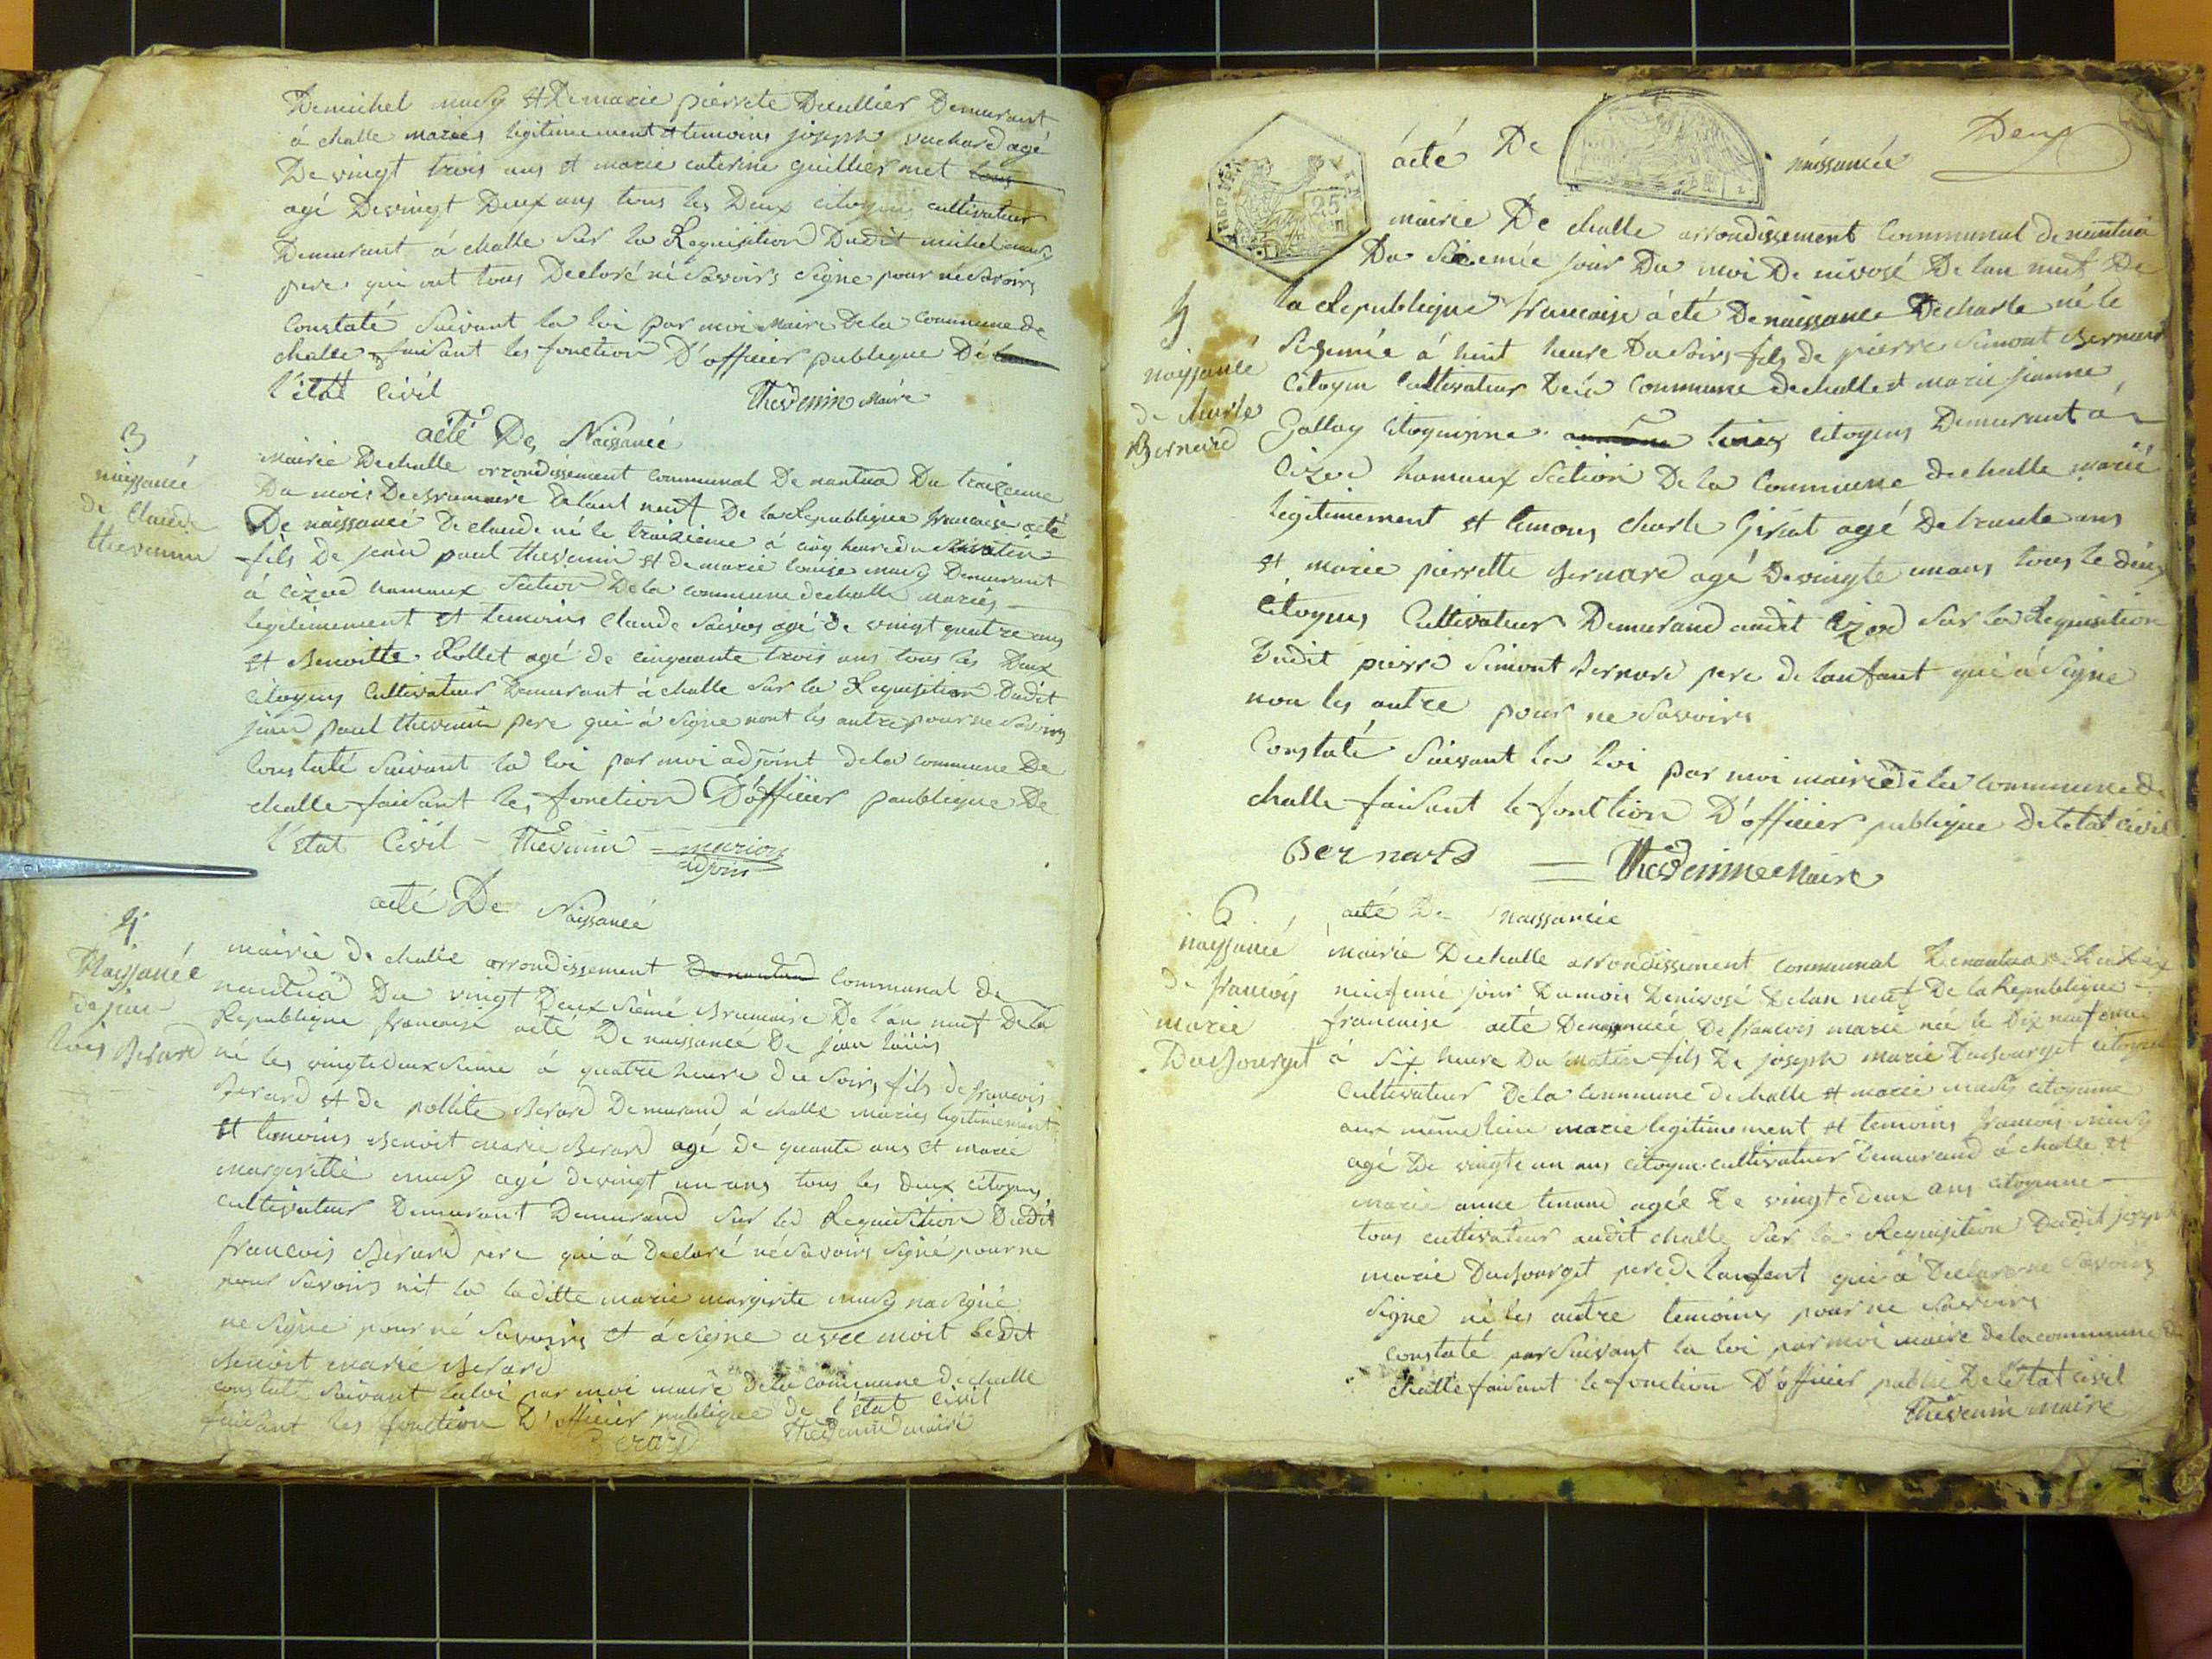 Demichel mury et De marie pierrete Decullier Demurant
à challe mariés legitimement et temoins joseph vuchard agé
De vingt trois ans et marie caterine guilliermet tous
agé De vingt Deux ans tous les Deux citoyens cultivateur
Demurant à challe sur la Requisition Dudit michel mury
pere qui ont tous Declaré né savoirs signe pour ne savoirs
Constaté suivant la loi par moi maire Dela Commune de
challe faisant les fonction D'officier publique De la
l'état Civil Thevenin maire
acté De Naissancé
3
naissancé
de Claude
thevenin
Mairie Dechalle arrondissement communal De nantua Du traizieme
Du mois De brumaire De lant neuf De la Republique francaise acté
De naissancé De claude né le traizieme à cinq heure du matin
fils De jean paul thevenin et de marie louise mury Demurant
à cizod hamaux section De la commune dechalle mariés
legitimement et temoins Claude savos agé de vingt quatre ans
et Benoitte Rollet agé de cinquante trois ans tous les Deux
citoyens cultivateur Demurant à challe sur la Requisition Dudit
jean paul thevenin pere qui à signe nont les autre pour ne savoirs
Constaté suivant la loi par moi adjoint dela commune De
challe faisant les fonction D'officier paublique De
l'état Civil - Thevenin = marion
adjoin
acté De Naissancé
4
Naissanée
de jean
lois Berard
mairie de challe arrondissement De nantua Communal de
nantua Du vingt Deux siemé Brumaire De l'an neuf De la
Republique francaise acté De naissancé De jean louis
né les vingtedeuxsieme à quatre heure du soirs fils de francois
Berard et de pollite Berard Demurand à challe mariés legitimement
et temoins Benoit marie Berard agé de quante ans et marie
margeritte mury agé devingt un ans tous les deux citoyens
cultivateur Demurant Demurand sur la Requisition Dudit
francois Berard pere qui à Declaré né savoirs signé pour ne
savoirs nit la laditte marie margirite mury na signé
ne signe pour né savoirs et à signe avec moit ledit
Benoit marie Berard
constate suivant laloi par moi maire dela commune dechalle
faisant les fonction D'officier publique de l'état civil
Berard Thevenin maire
Deux
acté De naissancée
REP. FRA.
25
cen
5
nayssancé
de charle
Bernard
mairie De challe arrondissement Communal de nantua
Du sixemée jour Du moi De nivosé De lan neuf De
la Republique francaise acté De naissance De charle né le
sixemée à huit heure Du soirs fils de pierre simont Bernard
Citoyen Cultivateur De la Commune dechalle et marie jeanne
Gallay Citoyeinne tous citoyens Demurant à
Cizod hamaux section De la Commune dechalle marié
legitimement et temons charle Girliat agé De trante ans
et marie pierrette Bernard agé De vingté unans tous le deux
citoyens Cultivateur Demurand audit Cizod sur la Requisition
Dudit pierre simont Bernard pere de lanfant qui à signe
non les autre pour ne savoirs
Constaté suivant la loi par moi mairie de la commune de
challe faisant le fonction D'officier publique De létat civil
Bernard = Thevenin Maire
6
nayssancé
de francois
marie
Dubourget
acté De naissancée
mairie Dechalle arrondissement communal De nantua Du dix
neufemé jour Dumois Denivosé Delan neuf De la Republique
francaisé acté De naissancée De francois marie née le Dix neufeme
à six heure Du Matin fils De joseph marie Dubourget citoyen
cultivateur De la commune dechalle et marie mury citoyenne
aux même lieu marie legitimement et temoins francois mury
agé De vingte un ans citoyen cultivateur Demurand à challe et
marie anne tenand agée De vingtedeux ans citoyenne
tous cultivateur audit challe sur la Requisition Dudit joseph
marie Dubourget pere de lanfant qui à Declare ne savoirs
signe né les autre temoins pour ne savoirs
constaté par suivant la loi par moi maire dela commune de
challe faisant le fonction D'officier public De létat civil
Thevenin maire